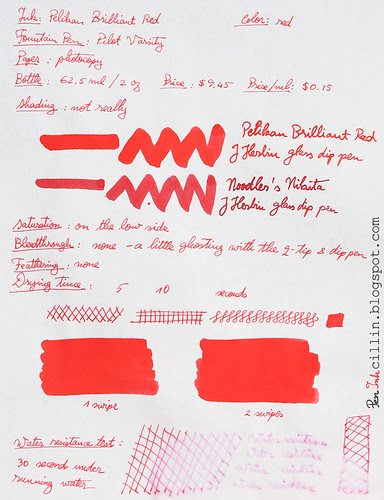 Ink: Pelikan Brilliant Red Color: red
Fountain Pen: Pilot Varsity
Paper: photocopy
Bottle: 62.5 ml / 2 oz Price: $9.45 Price/ml: $0.15
Shading: not really
Pelikan Brilliant Red
J Herbin glass dip pen
Noodler's Nikita
J Herbin glass dip pen
Saturation: on the low side
Bleedthrough: none - a little ghosting with the q-tip & dip pen
Feathering: none
Drying time: 5 10 seconds
1 swipe
2 swipes
Water resistance test:
30 second under
running water
Water resistance
water resistance
water resistance
PenInkcillin.blogspot.com